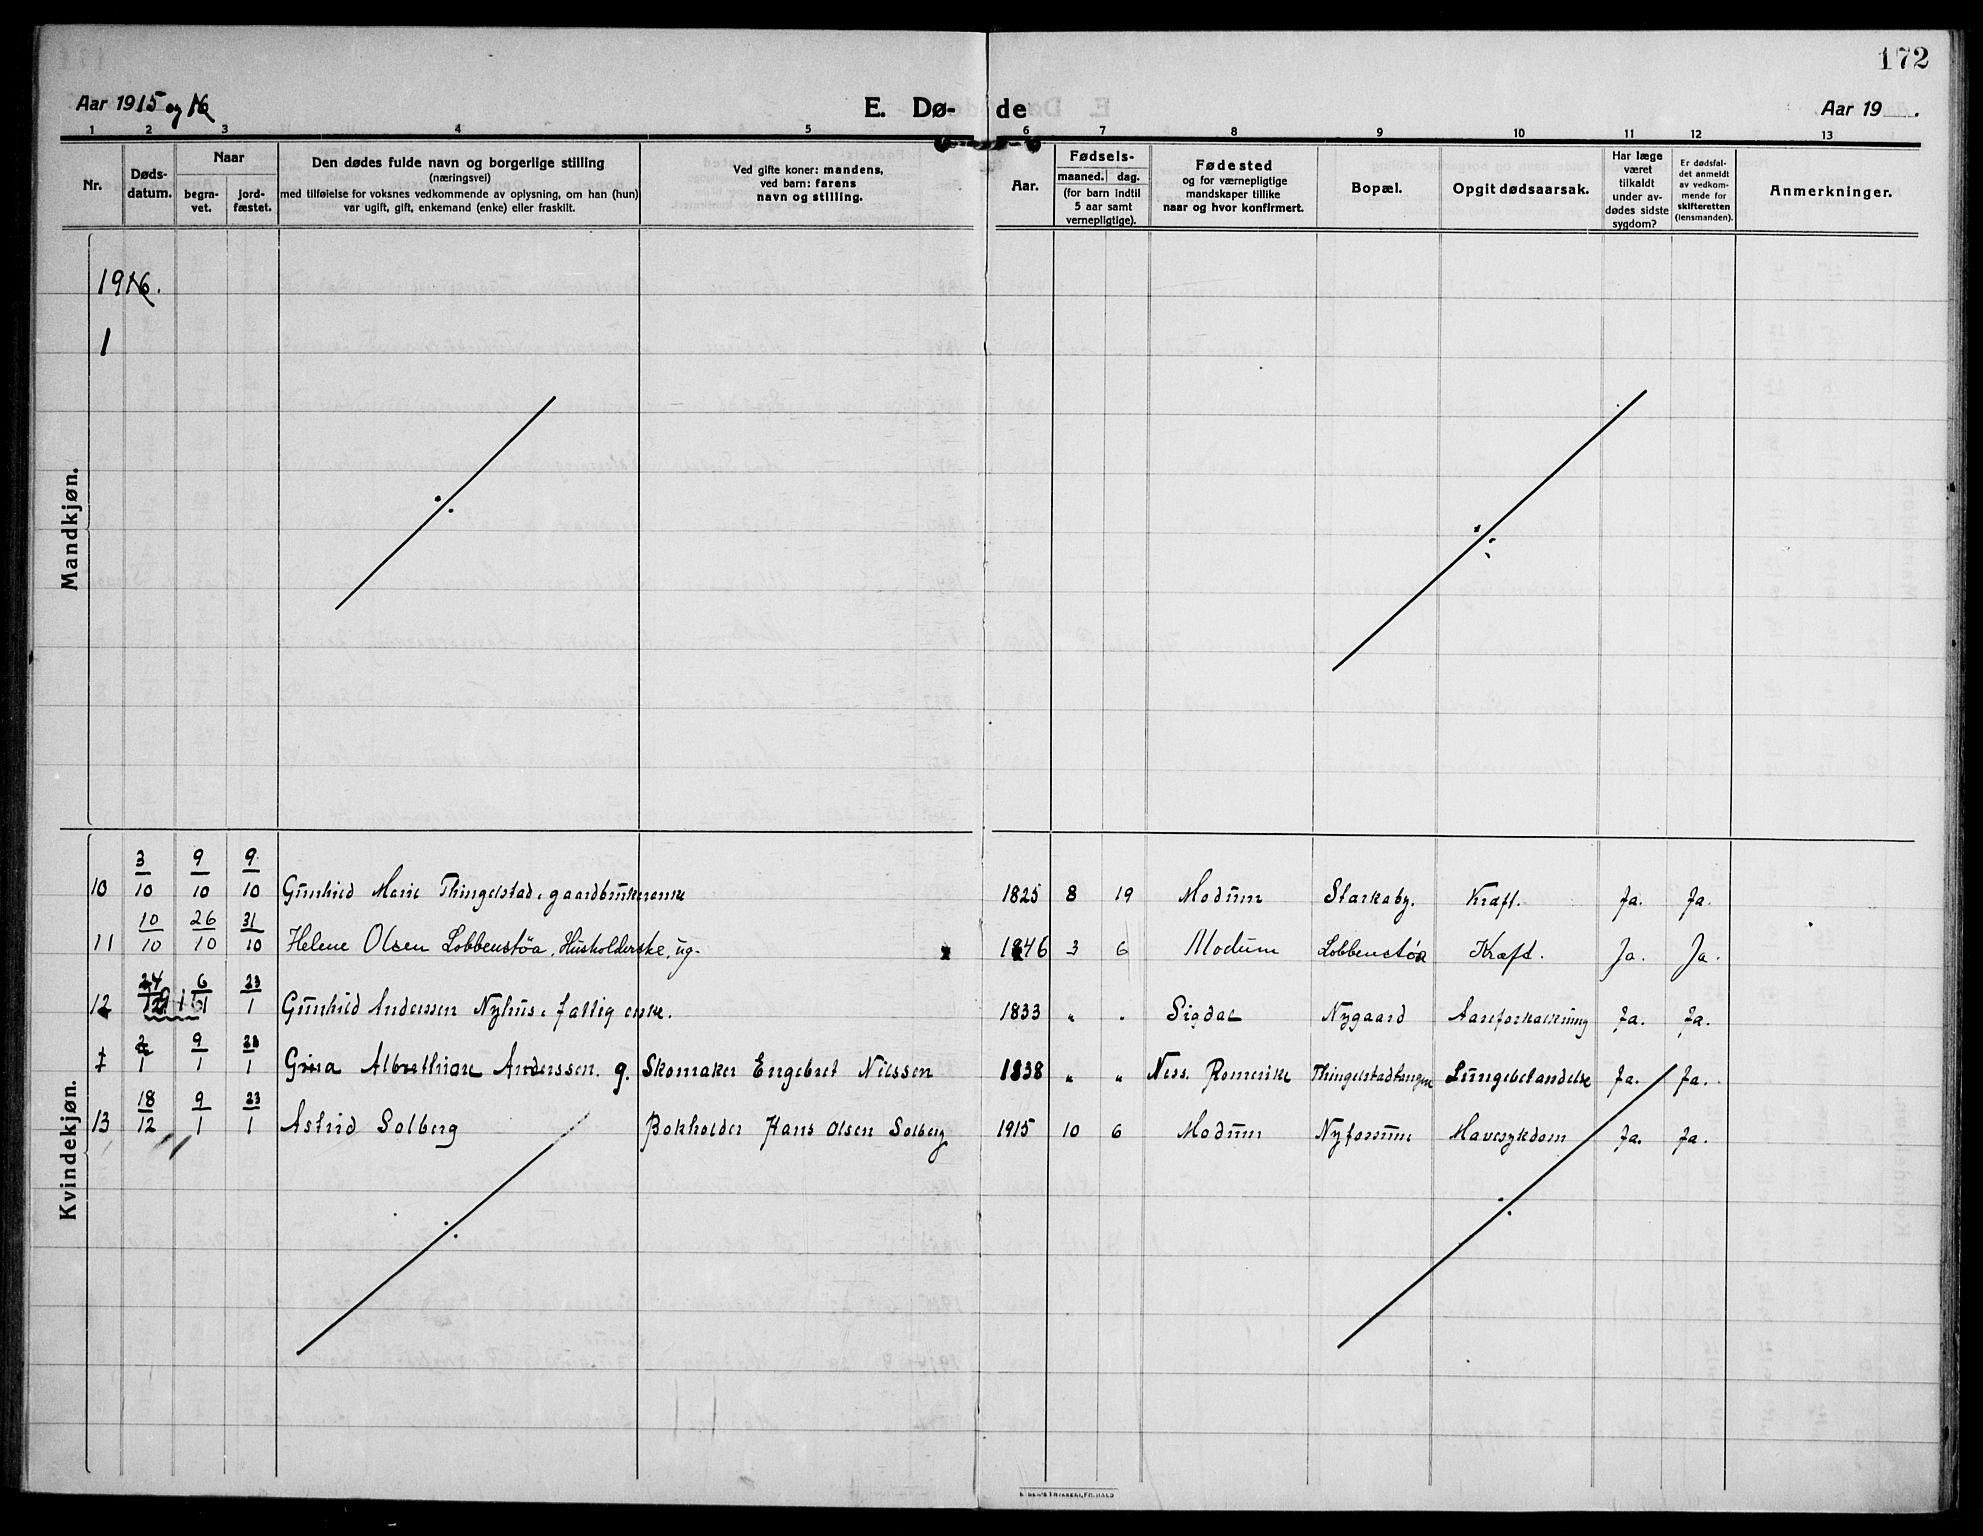 172
Aar 1915 og 16
E. Dø-
de
Aar 19 .
1 2 3 4 5 6 7 8 9 10 11 12 13
Nr.
Døds-
datum.
Naar
begra-
vet.
jord-
fæstet.
Den dødes fulde navn og borgerlige stilling
(næringsvei)
med tilføielse for voksnes vedkommende av oplysning, om han (hun)
var ugift, gift, enkemand (enke) eller fraskilt.
Ved gifte koner: mandens,
ved barn: farens
navn og stilling.
Aar.
Fødsels-
maaned. dag.
(for barn indtil
5 aar samt
vernepligtige).
Fødested
og for værnepligtige
mandskaper tillike
naar og hvor konfirmert.
Bopæl.
Opgit dødsaarsak.
Har læge
været
tilkaldt
under av-
dødes sidste
sygdom?
Er dødsfal-
det anmeldt
av vedkom-
mende for
skifteretten
(lensmanden).
Anmerkninger.
Mandkjøn.
1916.
1
Kvindekjøn.
10 3/10 9/10 9/10 Gunhild Marie Thingelstad, gaardbrukerenke 1825 8 19 Modum Starkaby. Kræft. Ja. Ja.
11 10/10 26/10 31/10 Helene Olsen Lobbenstøa, Husholderske, ug. 1846 3 6 Modum Lobbenstøa Kræft. Ja. Ja.
12 24/12 6/1 23/1 Gunhild Anderssen Nyhus, fattig enke. 1833 „ „ Sigdal Nygaard Aareforkalkning Ja. Ja.
1 2/1 9/1 23/1 Grina Albrethine Anderssen. g. Skomaker Engebret Nilssen 1838 „ „ Ness. Romerike Thingelstadtangen Lungebetændelse Ja. Ja.
13 18/12 9/1 23/1 Astrid Solberg Bokholder Hans Olsen Solberg 1915 10 6 Modum Nyfossum Mavesykdom Ja. Ja.